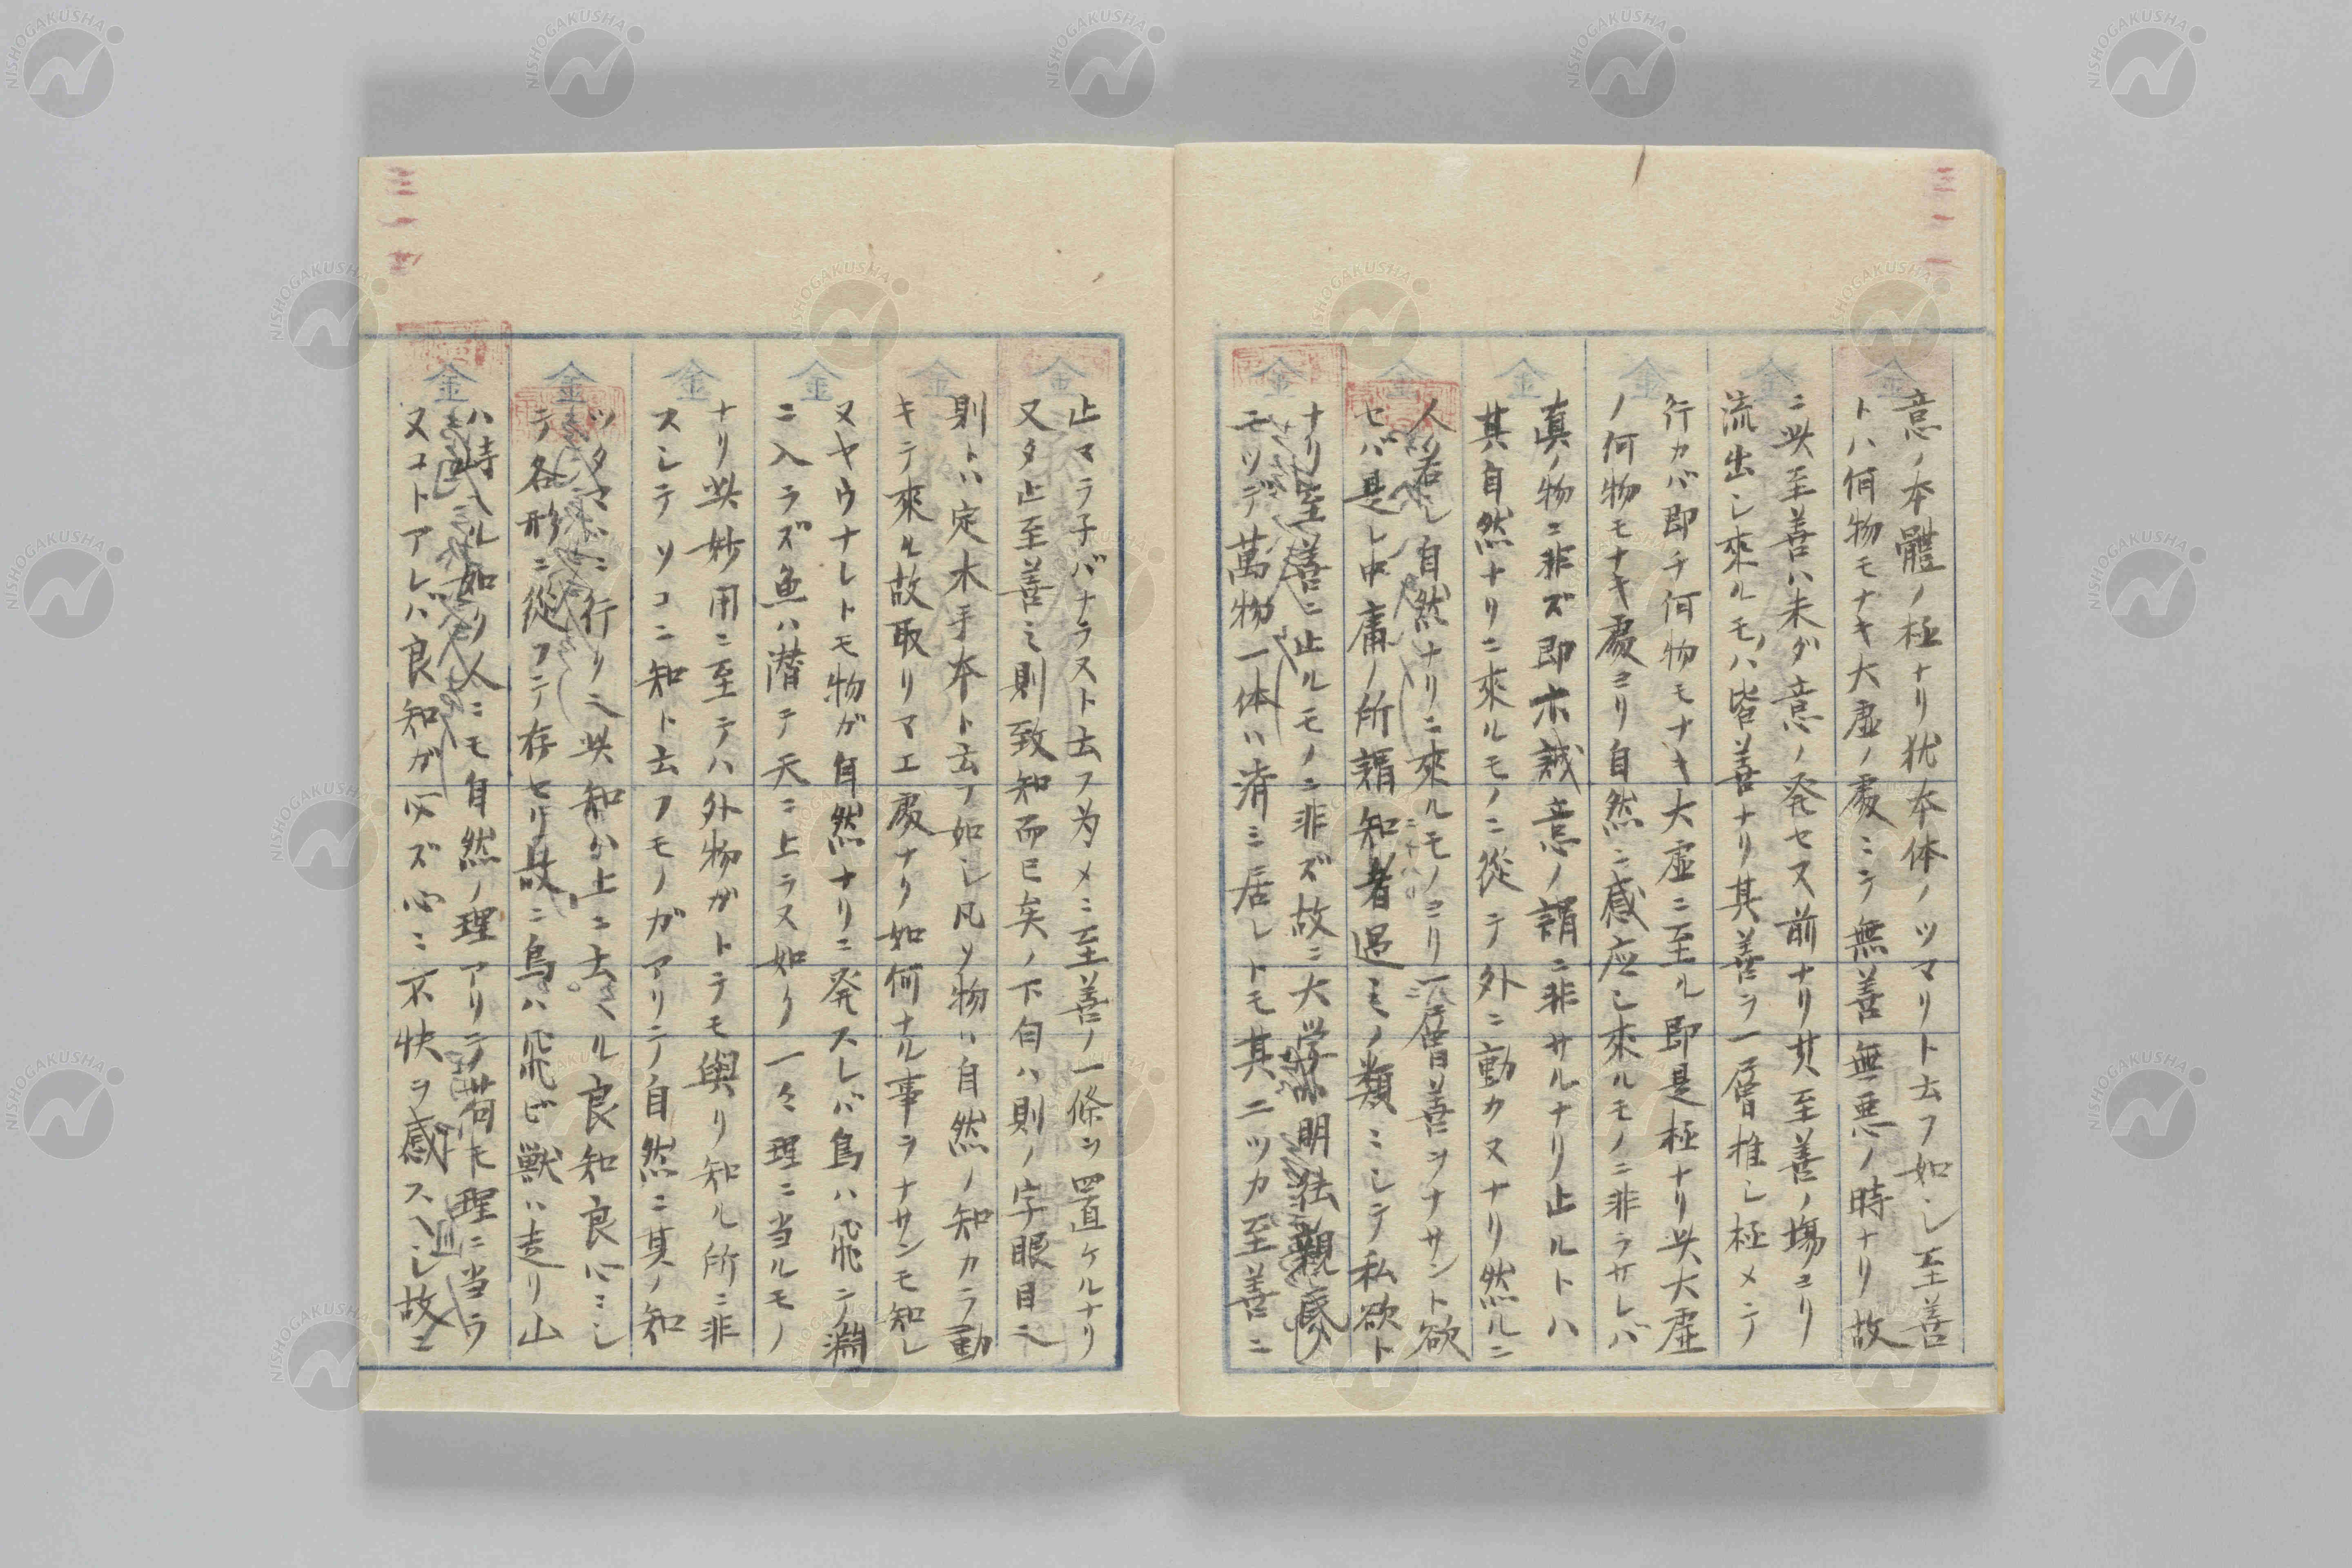 意ノ本體ノ極ナリ犹本体ノツマリト云フ如シ至善
トハ何物モナキ大虚ノ處ニシテ無善無悪ノ時ナリ故
ニ此至善ハ未ダ意ノ発セス前ナリ其至善ノ場ヨリ
流出シ來ルモノハ皆善ナリ其善ヲ一層推シ極メテ
行カバ即チ何物モナキ大虚ニ至ル即是極ナリ此大虚
ノ何物モナキ處ヨリ自然ニ感应シ來ルモノニ非ラサレバ
真ノ物ニ非ズ即ホ誠意ノ謂ニ非サルナリ止ルトハ
其自然ナリニ來ルモノニ從テ外ニ動カヌナリ然ルニ
人若シ自然ナリニ來ルモノヨリ一層善ヲナサント欲
セバ是レ中庸ノ所謂知者過ミノ類ニシテ私欲ト
ナリ至善ニ止ルモノニ非ズ故ニ大学明徳親民
モツデ萬物一体ハ済ミ居レトモ其二ツカ至善ニ
止マラ子バナラスト云フ為メニ至善ノ一條ヲ置ケルナリ
又タ止至善之則致知而已矣ノ下句ハ則ノ字眼目也
則トハ定木手本ト云フ如シ凡ソ物ハ自然ノ知カラ動
キテ來ル故取リマエ處ナリ如何ナル事ヲナサンモ知レ
ヌヤウナレトモ物ガ自然ナリニ発スレバ鳥ハ飛ンデ淵
ニ入ラズ魚ハ潜テ天ニ上ラス如ク一々理ニ当ルモノ
ナリ此妙用ニ至テハ外物ガトテモ與リ知ル所ニ非
スシテソコニ知ト云フモノガアリテ自然ニ其ノ知
行リ此知ガ上ニ云ヘル良知良心ニシ
テ各形ニ從フテ存セリ故ニ鳥ハ飛ビ獣ハ走リ山
ハ峙ツル如ク人ニモ自然ノ理アリテ苟モ理ニ当ラ
ヌコトアレバ良知ガ必ズ心ニ不快ヲ感スヘシ故ニ
三一一
NISHOGAKUSHA